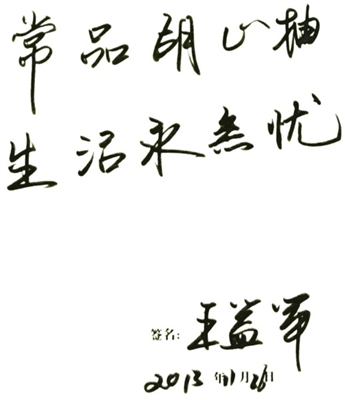 常品胡山柚
生活永無忧
签名: 王益军
2013年11月26日